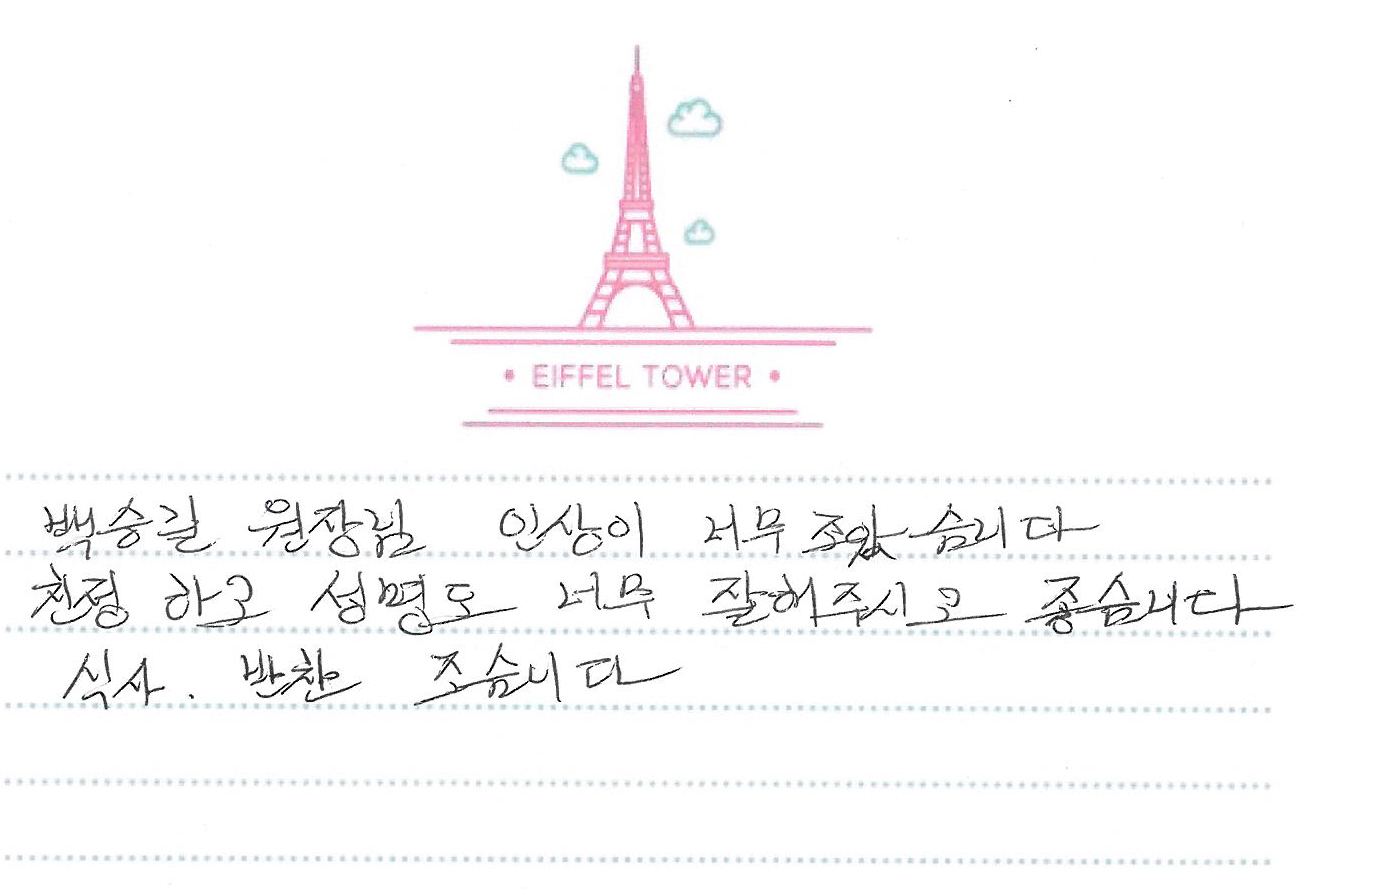 • EIFFEL TOWER •
백승길 원장님 인상이 너무 조았습니다
친정하고 성명도 너무 잘해주시고 좋습니다
식사. 반찬 조습니다